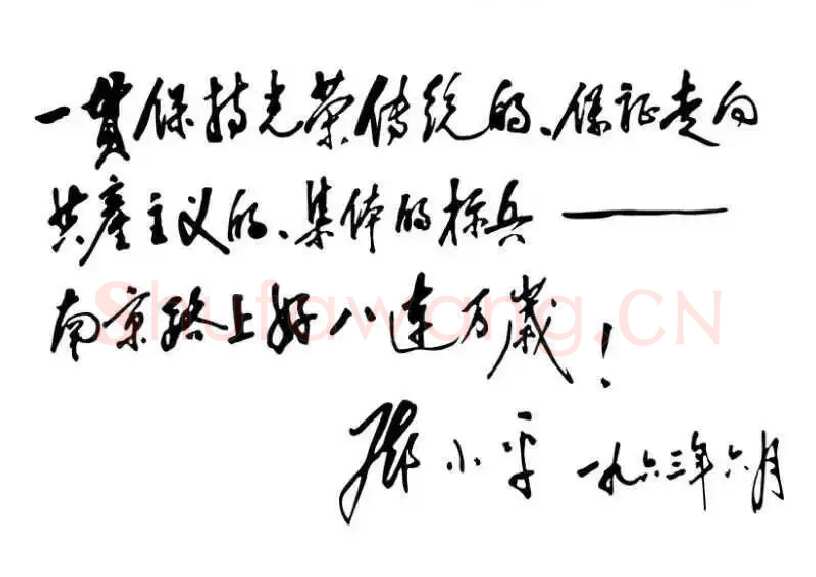 一貫保持光荣传统的、保证走向
共產主义的、集体的标兵——
南京路上好八连万歲！
邓小平 一九六三年六月
Shufawang.CN